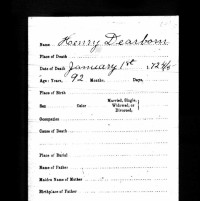 Name Henry Dearborn
Place of Death
Date of Death January 1st
Age: Years, 92 Months, Days,
Place of Birth
Sex Color Married, Single, Widowed, or Divorced,
Occupation
Cause of Death
Place of Burial
Name of Father
Maiden Name of Mother
Birthplace of Father